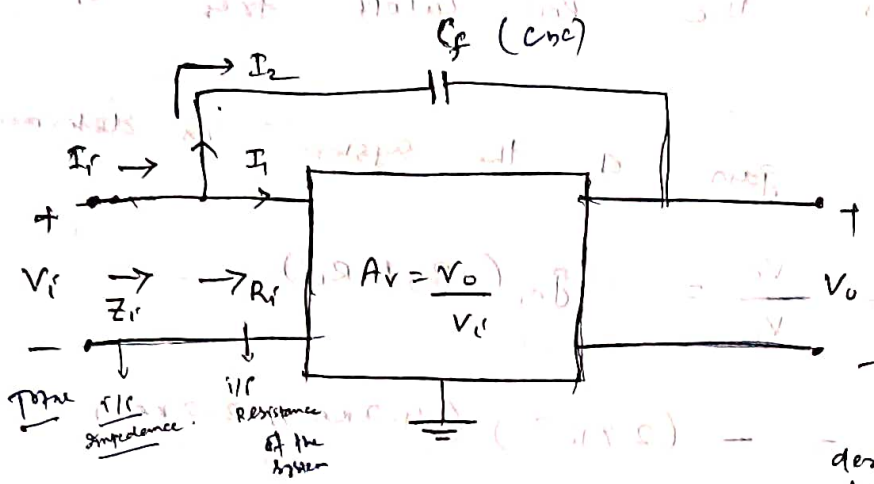 Cf (Cbc)
I2
Ii
I1
+
+
Vi
Zi
Ri
Av = Vo
Vi
Vo
-
Total
i/p
impedance.
i/p
Resistance
of the
System